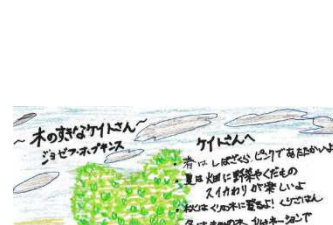 ～木のすきなケイトさん～
ジョセフ・ホプキンス
ケイトさんへ
・春は しばざくら ピンクであたたかいよ
・夏は 畑に野菜やくだもの
スイカわりが 楽しいよ
・秋はくりの木に登るよ! くりごはん